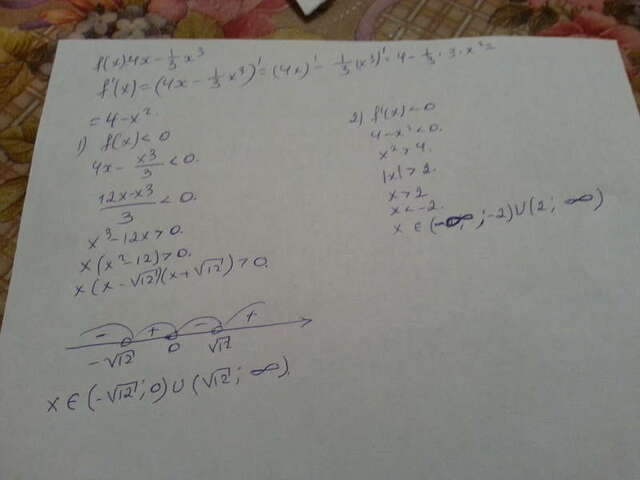 f(x) 4x - 1/3 x³
f'(x) = (4x - 1/3 x³)' = (4x)' - 1/3 (x³)' = 4 - 1/3 · 3 · x² =
= 4 - x².
1) f(x) < 0
4x - x³/3 < 0.
12x-x³/3 < 0.
x³ - 12x > 0.
x(x² - 12) > 0.
x(x - √12)(x + √12) > 0.
- + - +
-√12 0 √12
x ∈ (-√12; 0) ∪ (√12; ∞)
2) f'(x) < 0
4 - x² < 0.
x² > 4.
|x| > 2.
x > 2
x < -2.
x ∈ (-∞; -2) ∪ (2; ∞)